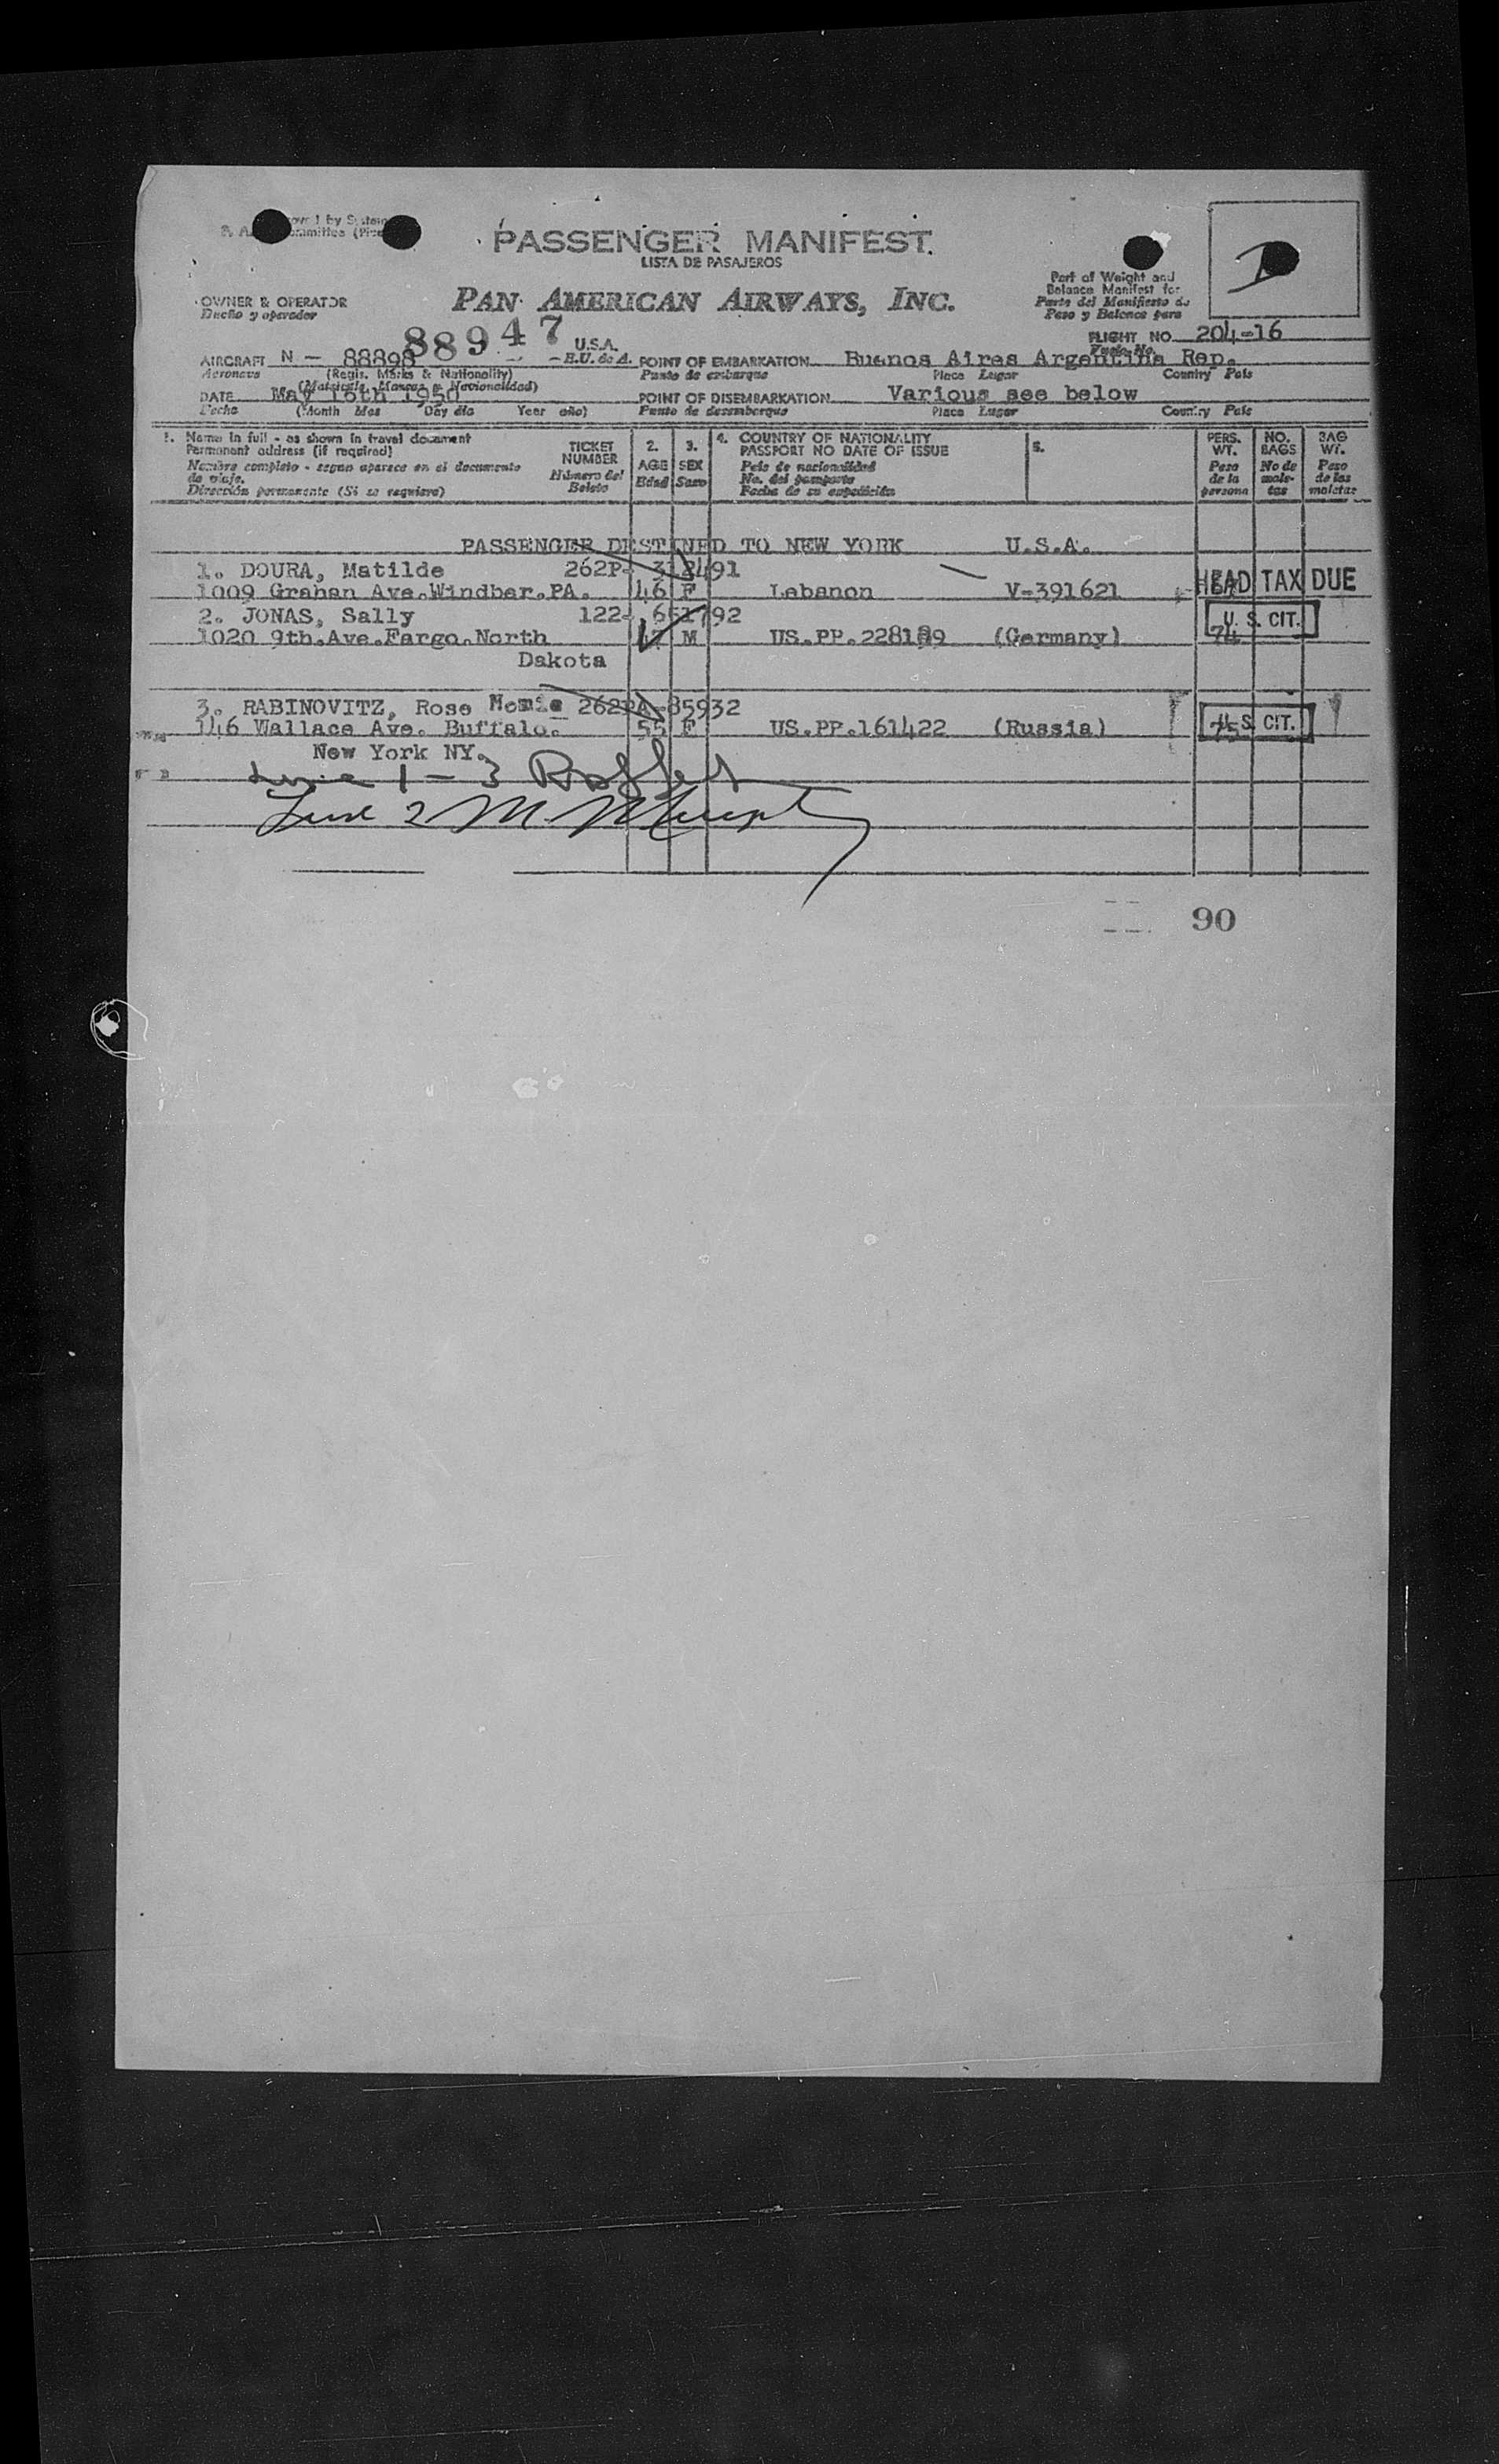 PASSENGER MANIFEST
LISTA DE PASAJEROS
OWNER & OPERATOR
Dueño y operador
PAN AMERICAN AIRWAYS, INC.
Part of Weight and
Balance Manifest for
Parte del Manifiesto de
Peso y Balance para
FLIGHT NO. 204-16
Vuelo No.
88947
AIRCRAFT N - 88898 U.S.A. POINT OF EMBARKATION Buenos Aires Argentina Rep.
Aeronave (Regis. Marks & Nationality) E.U. de A. Punto de embarque Place Lugar Country País
(Matricula, Marcas y Nacionalidad)
DATE May 16th 1950 POINT OF DISEMBARKATION Various see below
Fecha (Month Mes Day día Year año) Punto de desembarque Place Lugar Country País
1. Name in full - as shown in travel document
Permanent address (if required)
Nombre completo - segun aparece en el documento
de viaje.
Dirección permanente (Si se requiere)
TICKET
NUMBER
Número del
Boleto
2.
AGE
Edad
3.
SEX
Sexo
4. COUNTRY OF NATIONALITY
PASSPORT NO DATE OF ISSUE
País de nacionalidad
No. del pasaporte
Fecha de su expedición
5.
PERS.
WT.
Peso
de la
persona
NO.
BAGS
No de
male-
tas
BAG
WT.
Peso
de las
maletas
PASSENGER DESTINED TO NEW YORK U.S.A.
1. DOURA, Matilde 262P- 318491
1009 Grahan Ave.Windber.PA. 46 F Lebanon V-391621 HEAD TAX DUE
2. JONAS, Sally 122- 651792
1020 9th.Ave.Fargo.North 47 M US.PP.228189 (Germany) 74 U. S. CIT.
Dakota
3. RABINOVITZ, Rose Nemie 262PA-85932
146 Wallace Ave. Buffalo. 55 F US.PP.161422 (Russia) 75 U. S. CIT.
New York NY.
Line 1 - 3
Line 2 M
90